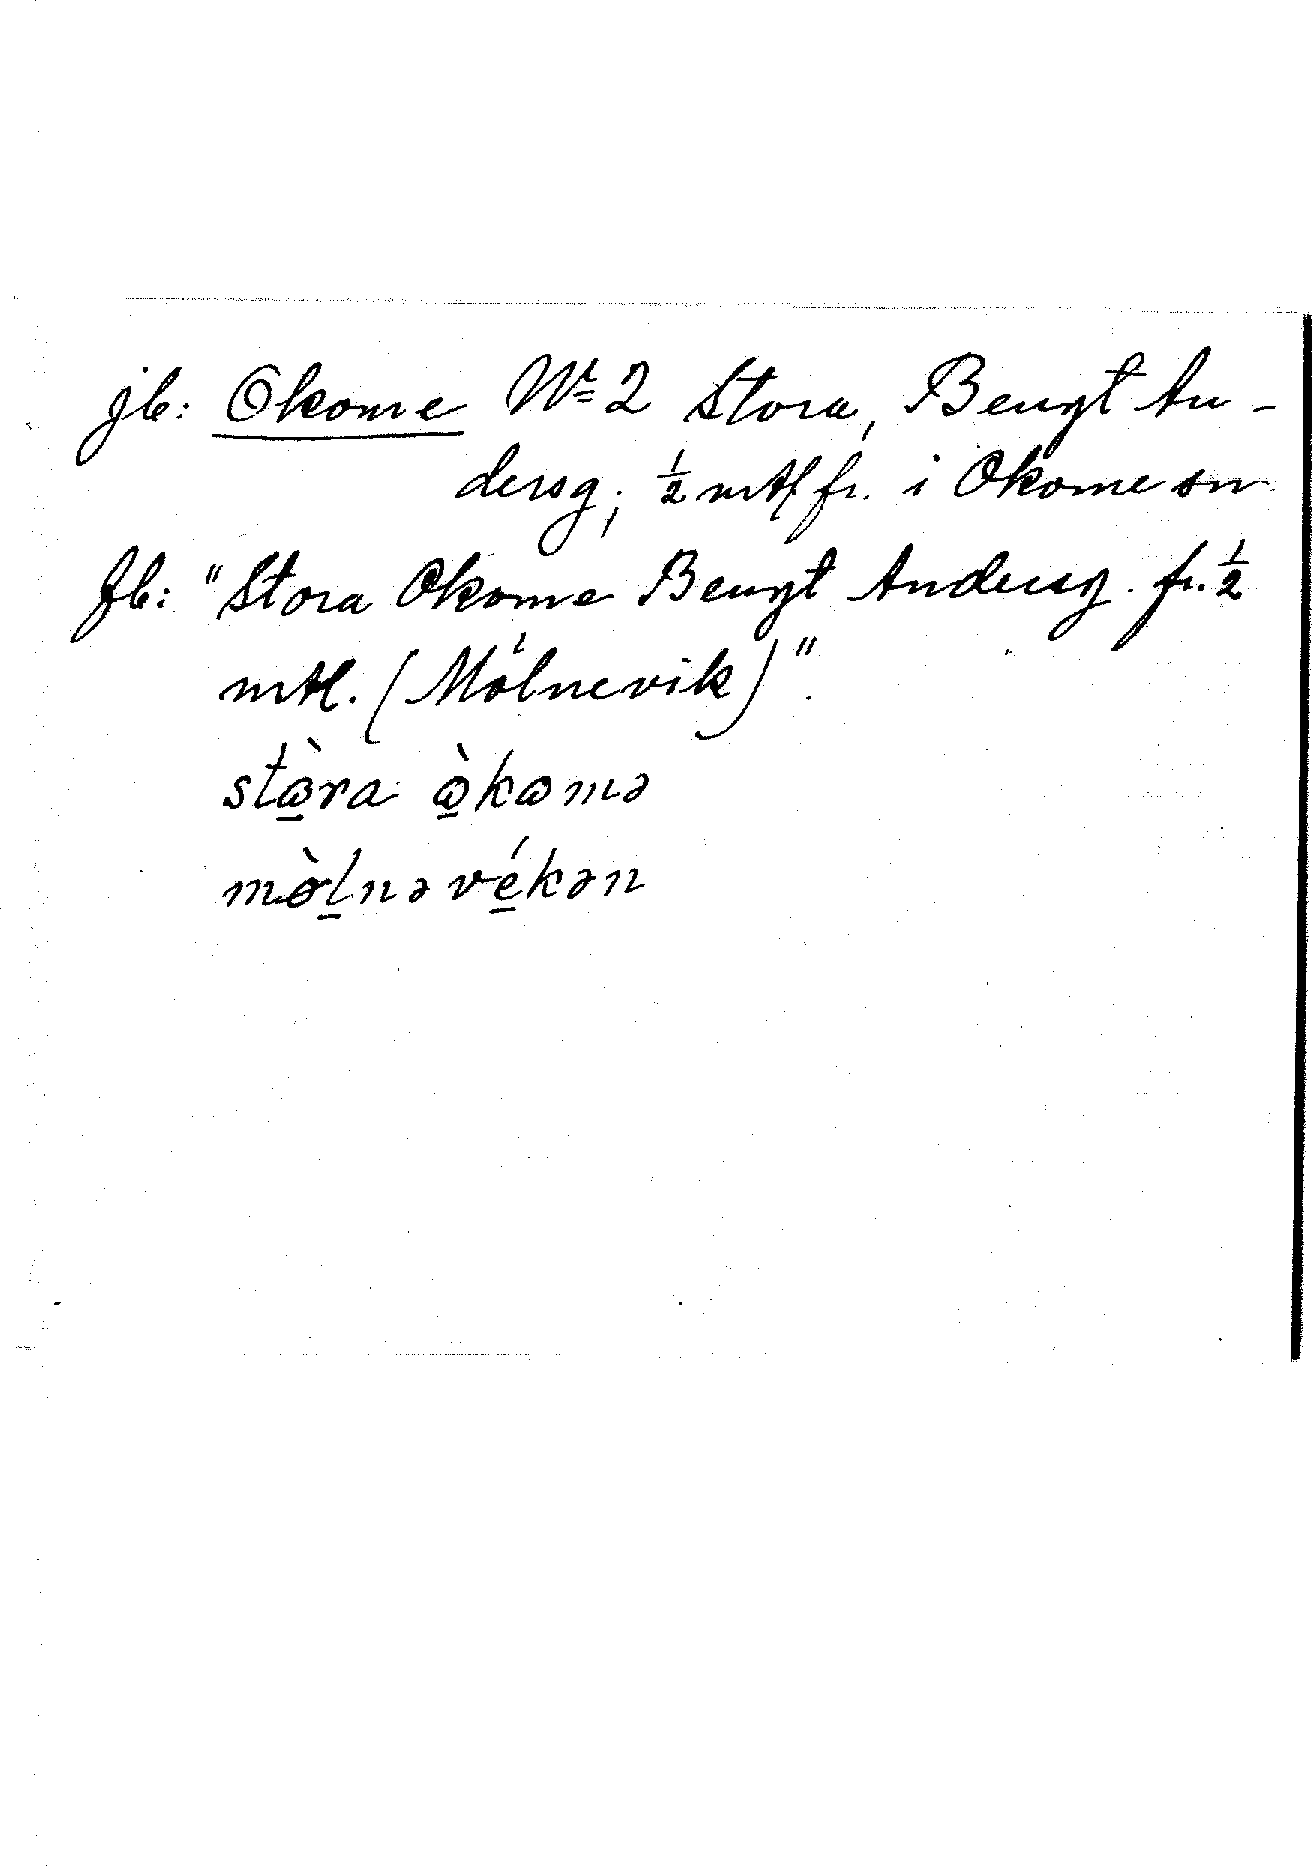 jb: Okome Nr 2 Stora, Bengt An-
dersg, ½ mtl fr. i Okome sn
fb: "Stora Okome Bengt Andersg. fr. ½
mtl. (Mölnevik)".
stɷ̀ra ɷ̀kɷmə
mø̀lnəvékən